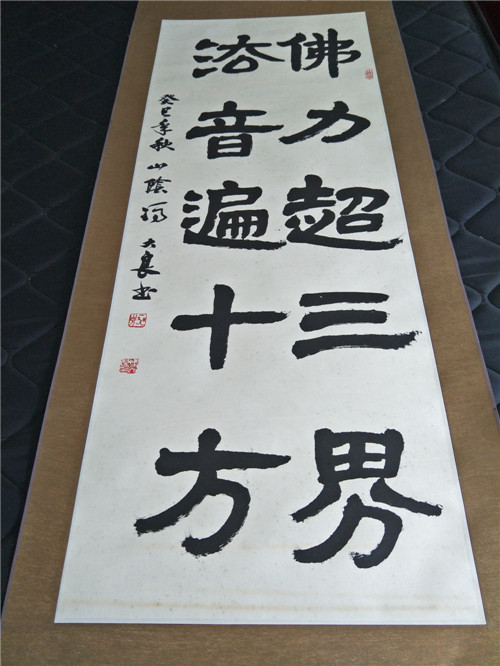 佛力超三界
法音遍十方
癸巳年秋山陰馮大良书